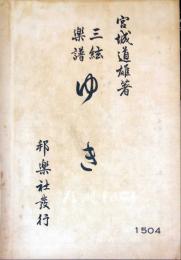 宮城道雄著
三絃
楽譜
ゆき
邦楽社發行
1504